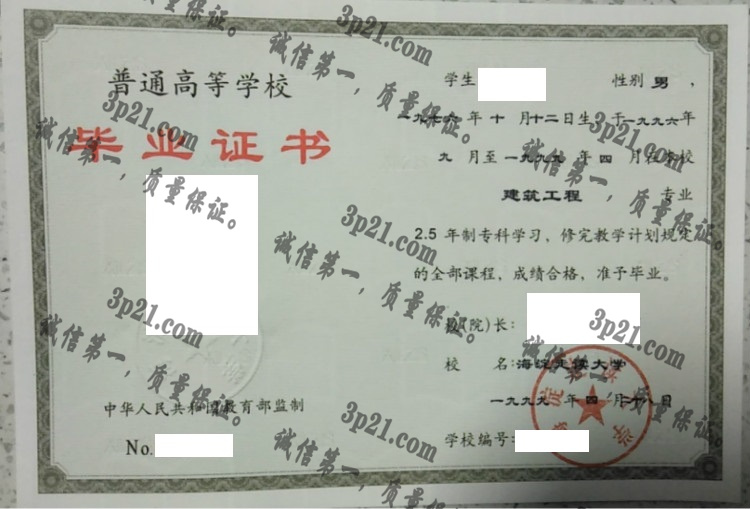 普通高等学校
毕业证书
中华人民共和国教育部监制
No.
学生 性别 男 ,
一九七六 年 十 月 十二日生,于一九九六年
九 月至一九九九 年 四 月在本校
建筑工程 专业
2.5 年制专科学习，修完教学计划规定
的全部课程，成绩合格，准予毕业。
(院)长:
校 名:海淀走读大学
一九九九 年 四 月十八日
学校编号:
3p21.com
诚信第一，质量保证。
3p21.com
诚信第一，质量保证。
3p21.com
诚信第一，质量保证。
3p21.com
诚信第一，质量保证。
3p21.com
诚信第一，质量保证。
3p21.com
3p21.com
诚信第一，质量保证。